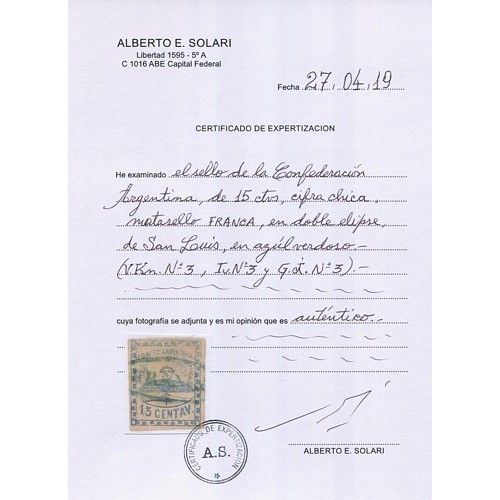 ALBERTO E. SOLARI
Libertad 1595 - 5º A
C 1016 ABE Capital Federal
Fecha 27/04/19
CERTIFICADO DE EXPERTIZACION
He examinado el sello de la Confederación
Argentina, de 15 ctvs, cifra chica,
matasello FRANCA, en doble elipse,
de San Luis, en azúl verdoso.-
(V.Kn. Nº3, Iv. Nº3 y G.J. Nº3).-
cuya fotografía se adjunta y es mi opinión que es auténtico.-
15 CENTAV.
CERTIFICADO DE EXPERTIZACION
A.S.
ALBERTO E. SOLARI